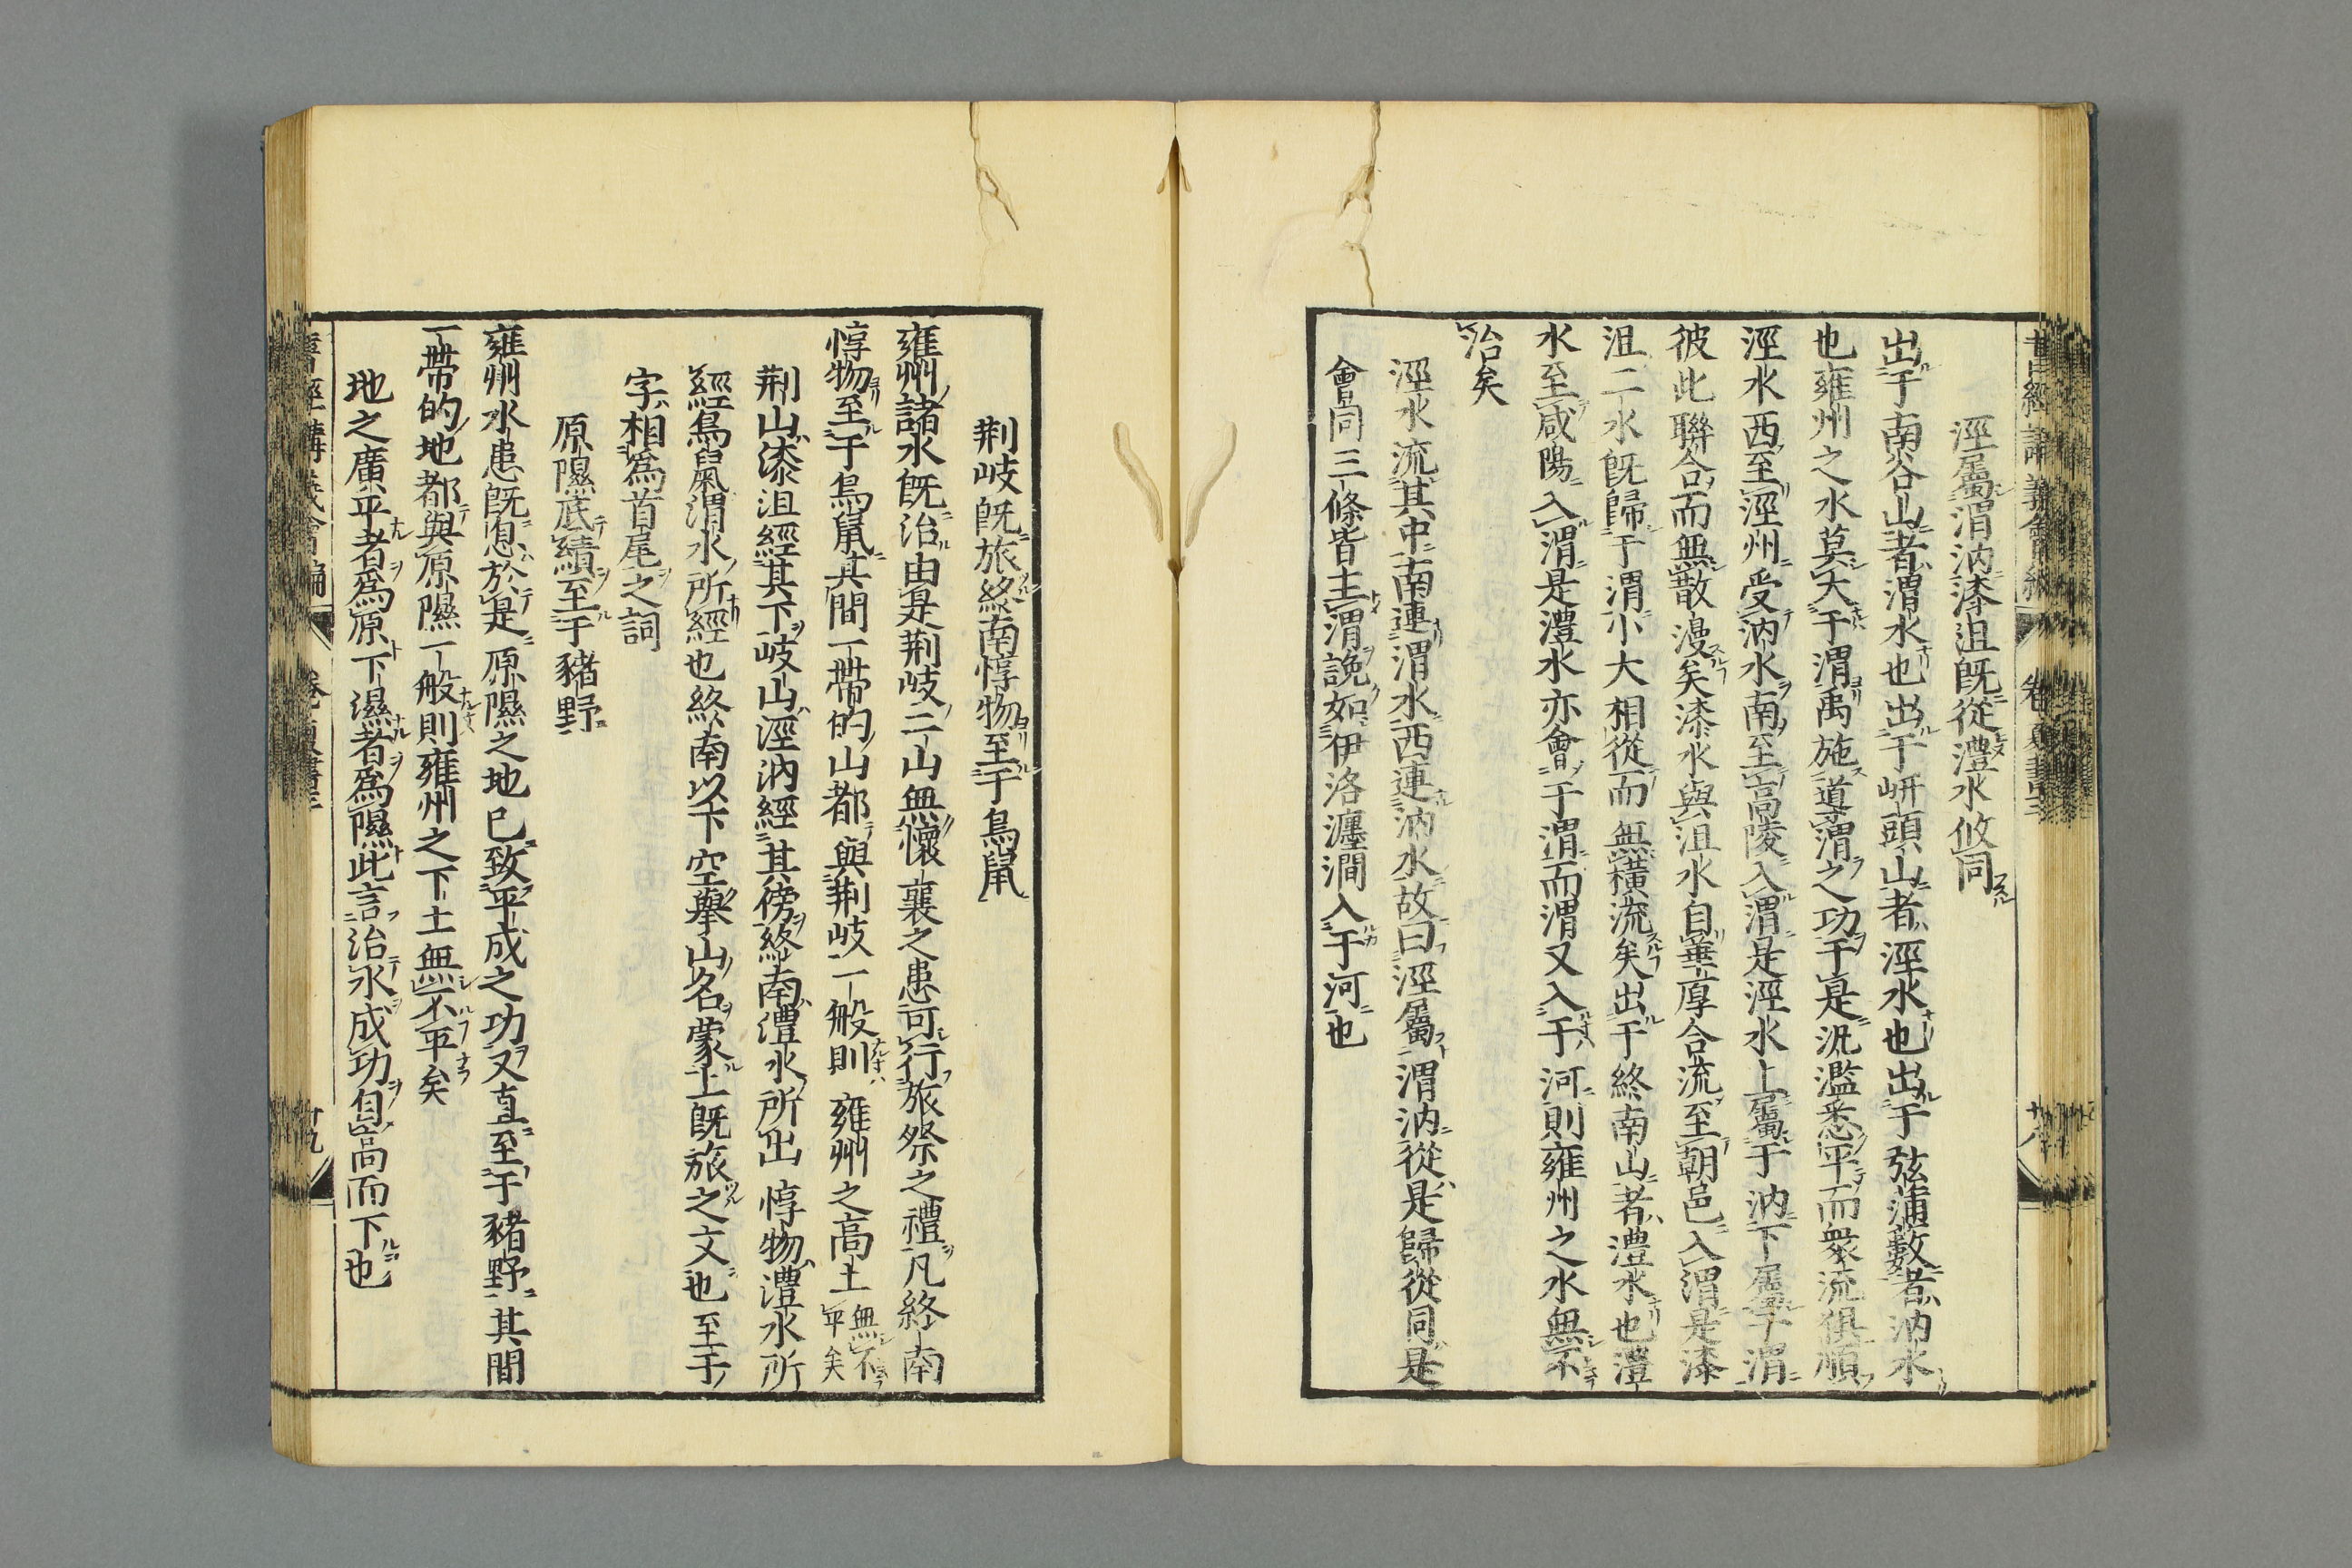 涇屬渭汭漆沮既從灃水攸同
出于南谷山者渭水也出于岍頭山者涇水也出于弦蒲藪者汭水
也雍州之水莫大于渭禹施導渭之功于是汎濫悉平而衆流俱順
涇水西至涇州受汭水南至高陵入渭是涇水上屬于汭下屬于渭
彼此聯合而無散漫矣漆水與沮水自華厚合流至朝邑入渭是漆
沮二水既歸于渭小大相從而無橫流矣出于終南山者灃水也灃
水至咸陽入渭是灃水亦會于渭而渭又入于河則雍州之水無不
治矣
涇水流其中南連渭水西連汭水故曰涇屬渭汭從是歸從同是
會同三條皆主渭說如伊洛瀍澗入于河也
荆岐既旅終南惇物至于鳥鼠
雍州諸水既治由是荆岐二山無懷襄之患可行旅祭之禮凡終南
惇物至于鳥鼠其間一帶的山都與荆岐一般則雍州之高土無不平矣
荆山漆沮經其下岐山涇汭經其傍終南灃水所出惇物灃水所
經鳥鼠渭水所經也終南以下空舉山名蒙上既旅之文也至于
字相爲首尾之詞
原隰底績至于豬野
雍州水患既息於是原隰之地已致平成之功又直至于豬野其間
一帶的地都與原隰一般則雍州之下土無不平矣
地之廣平者爲原下濕者爲隰此言治水成功自高而下也